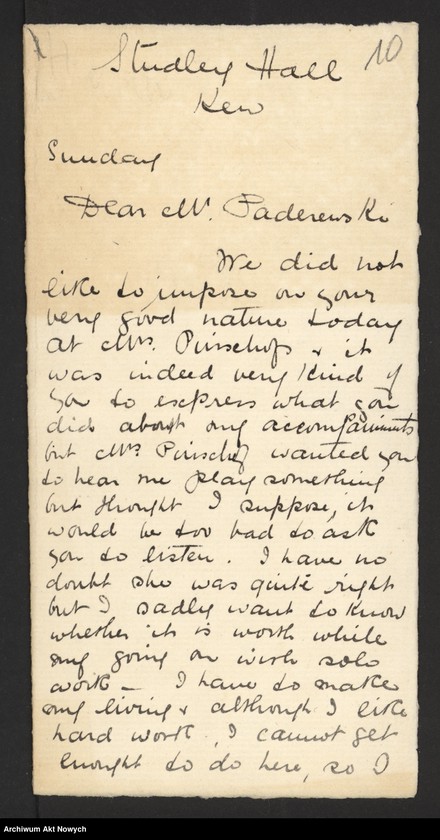 10
Studley Hall
Kew
Sunday
Dear Mr. Paderewski
We did not
like to impose on your
very good nature today
at Mrs. Pinschof's & it
was indeed very kind of
you to express what you
did about my accompaniments
but Mrs Pinschof wanted you
to hear me play something
but thought I suppose, it
would be too bad to ask
you to listen. I have no
doubt she was quite right
but I sadly want to know
whether it is worth while
my going on with solo
work — I have to make
my living & although I like
hard work, I cannot get
enought to do here, so I
Archiwum Akt Nowych